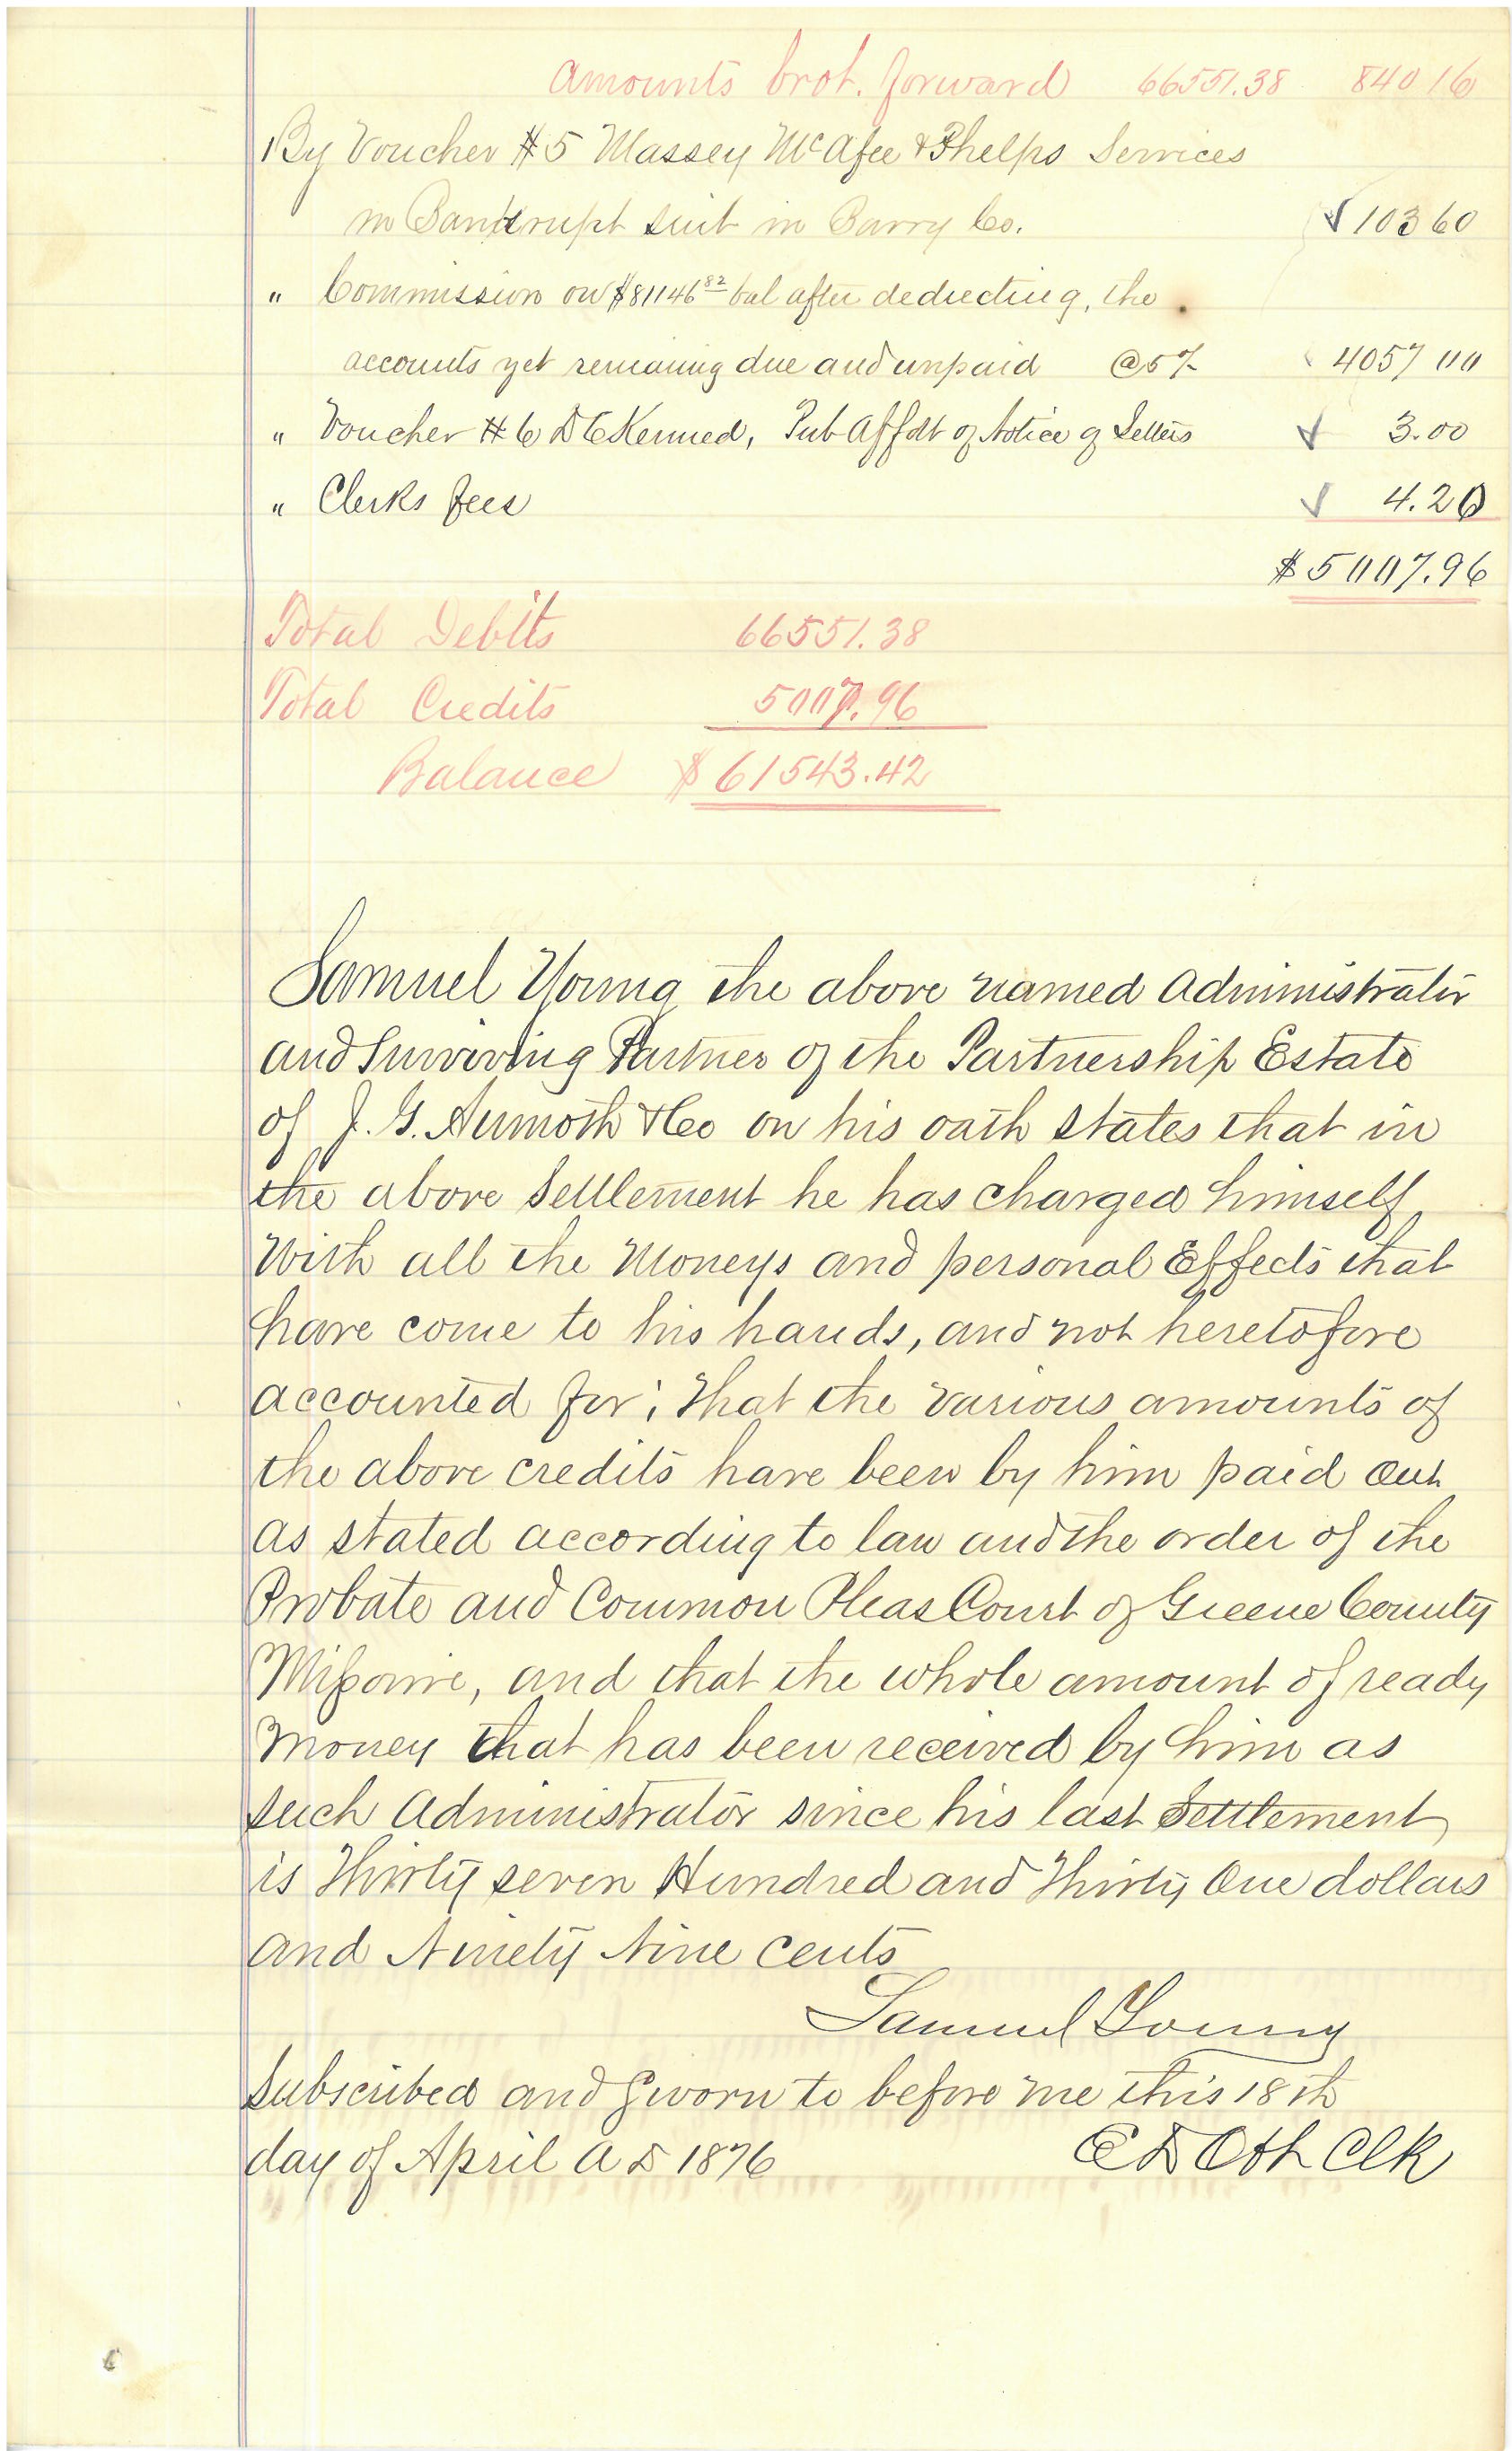 Amounts brot. forward 66551.38 840 16
By Voucher #5 Massey McAfee & Phelps Services
in Bankrupt Suit in Barry Co. 103 60
" Commission on $81146 82 bal after deducting, the
accounts yet remaing due and unpaid @5% 4057 00
" Voucher #6 D C Kenned, Pub Affdt of Notice of Letters 3.00
" Clerks fees 4.20
$5007.96
Total Debits 66551.38
Total Credits 5007.96
Balance $61543.42
Samuel Young the above named Administrator
and Surviving Partner of the Partnership Estate
of J. G. & Co on his oath States that in
the above Settlement he has charged himself
With all the Moneys and personal Effects that
have come to his hands, and not heretofore
accounted for; that the various amounts of
the above credits have been by him paid out
as stated according to law and the order of the
Probate and Common Pleas Court of Greene County
Missouri, and that the whole amount of ready
money that has been received by him as
such Administrator since his last Settlement
is Thirty seven Hundred and Thirty One dollars
and Ninety Nine cents
Samuel Young
Subscribed and Sworn to before me this 18th
day of April A D 1876 E D Ott Clk